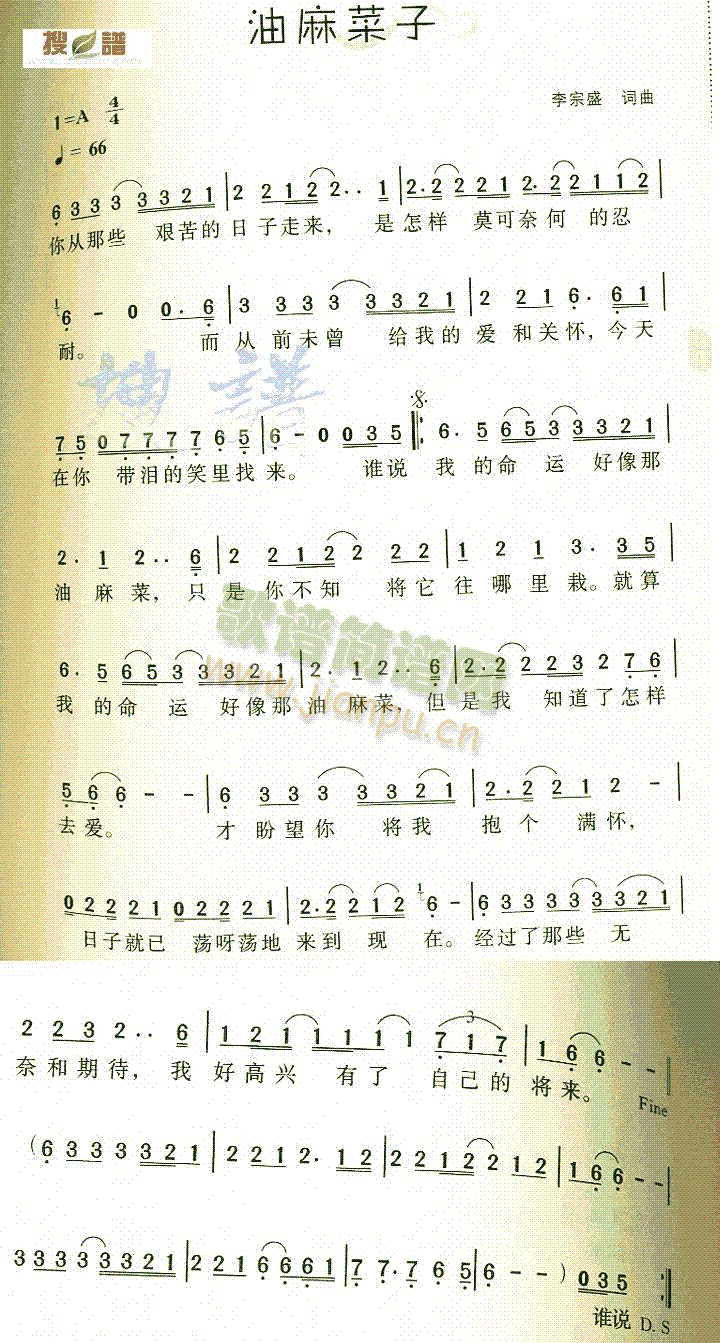 搜 谱
油麻菜子
李宗盛 词曲
1=A 4/4
♩= 66
6 3 3 3 3 3 2 1 | 2 2 1 2 2 ·· 1 | 2 · 2 2 2 2 1 2 · 2 2 1 1 2 |
你从那些 艰苦的日子走来， 是怎样 莫可奈何 的忍
1 6 - 0 0 · 6 | 3 3 3 3 3 3 2 1 | 2 2 1 6 · 6 1 |
耐。 而从前未曾 给我的爱和关怀，今天
7 5 0 7 7 7 7 6 5 | 6 - 0 0 3 5 |: 6 · 5 6 5 3 3 3 2 1 |
在你 带泪的笑里找来。 谁说 我的命 运 好像那
2 · 1 2 ·· 6 | 2 2 1 2 2 2 2 | 1 2 1 3 · 3 5 |
油 麻菜，只是你不知 将它往哪里栽。就算
歌谱简谱网
www.jianpu.cn
6 · 5 6 5 3 3 3 2 1 | 2 · 1 2 ·· 6 | 2 · 2 2 2 3 2 7 6 |
我 的命 运 好像那油 麻菜，但是我 知道了怎样
5 6 6 - - | 6 3 3 3 3 3 2 1 | 2 · 2 2 1 2 - |
去爱。 才盼望你 将我 抱个 满怀，
0 2 2 2 1 0 2 2 2 1 | 2 · 2 2 1 2 1 6 - | 6 3 3 3 3 3 3 2 1 |
日子就已 荡呀荡地 来到 现 在。经过了那些 无
2 2 3 2 ·· 6 | 1 2 1 1 1 1 1 7 1 7 | 1 6 6 - - ‖
奈和期待，我好高兴 有了 自己的将来。 Fine
( 6 3 3 3 3 3 2 1 | 2 2 1 2 · 1 2 | 2 2 1 2 2 1 2 | 1 6 6 - - |
3 3 3 3 3 3 2 1 | 2 2 1 6 6 6 1 | 7 7 · 7 6 5 | 6 - - ) 0 3 5 :‖
谁说 D.S